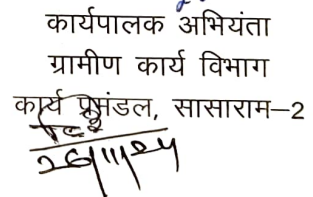 कार्यपालक अभियंता
ग्रामीण कार्य विभाग
कार्य प्रमंडल, सासाराम–2
26/11/24